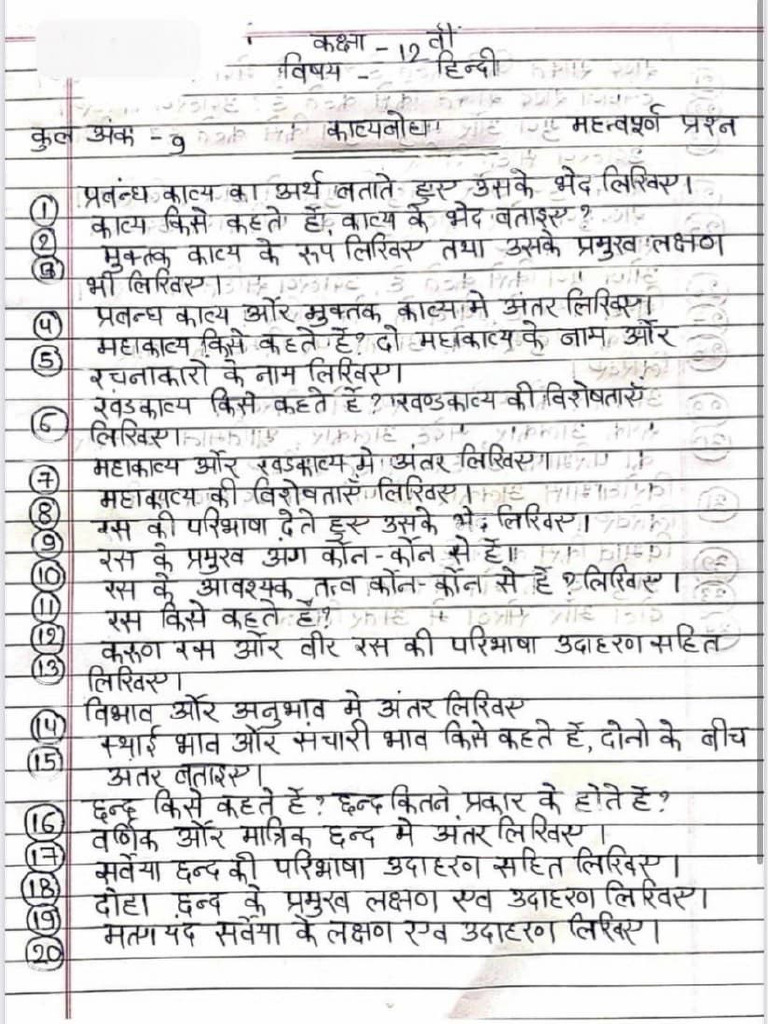 कक्षा - 12 वीं
विषय - हिन्दी
कुल अंक - 9 काव्यबोध महत्वपूर्ण प्रश्न
① प्रबंन्ध काव्य का अर्थ बताते हुए उसके भेद लिखिए।
② काव्य किसे कहते है, काव्य के भेद बताइए?
③ मुक्तक काव्य के रूप लिखिए तथा उसके प्रमुख लक्षण
भी लिखिए।
④ प्रबन्ध काव्य और मुक्तक काव्य मे अंतर लिखिए।
⑤ महाकाव्य किसे कहते है? दो महाकाव्य के नाम और
रचनाकारो के नाम लिखिए।
⑥ खंडकाव्य किसे कहते है? खण्डकाव्य की विशेषताएँ
लिखिए।
⑦ महाकाव्य और खंडकाव्य मे अंतर लिखिए।
⑧ महाकाव्य की विशेषताएँ लिखिए।
⑨ रस की परिभाषा देते हुए उसके भेद लिखिए।
⑩ रस के प्रमुख अंग कौन-कौन से है।
⑪ रस के आवश्यक तत्व कौन-कौन से है? लिखिए।
⑫ रस किसे कहते है?
⑬ करूण रस और वीर रस की परिभाषा उदाहरण सहित
लिखिए।
⑭ विभाव और अनुभाव मे अंतर लिखिए
⑮ स्थाई भाव और संचारी भाव किसे कहते है, दोनो के बीच
अंतर बताइए।
⑯ छन्द किसे कहते है? छन्द कितने प्रकार के होते है?
⑰ वर्णिक और मात्रिक छन्द मे अंतर लिखिए।
⑱ सवैया छन्द की परिभाषा उदाहरण सहित लिखिए।
⑲ दोहा छन्द के प्रमुख लक्षण एवं उदाहरण लिखिए।
⑳ मत्तगयंद सवैया के लक्षण एवं उदाहरण लिखिए।